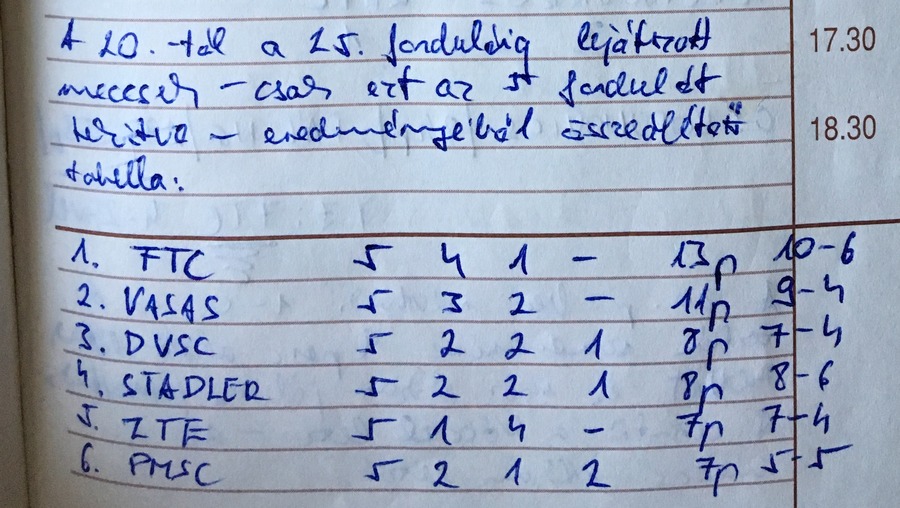 A 20. -tól a 25. fordulóig lejátszott
meccsek - csak ezt az 5 fordulót
tekintve - eredményéből összeállított
tabella:
17.30
18.30
1. FTC 5 4 1 - 13p 10-6
2. VASAS 5 3 2 - 11p 9-4
3. DVSC 5 2 2 1 8p 7-4
4. STADLER 5 2 2 1 8p 8-6
5. ZTE 5 1 4 - 7p 7-4
6. PMSC 5 2 1 2 7p 5-5